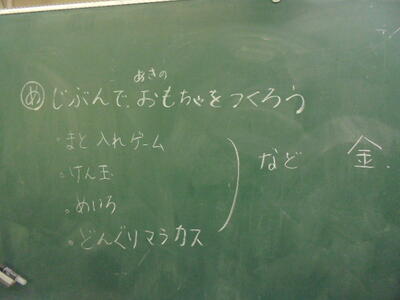 あきの
め じぶんで おもちゃをつくろう
・まと入れゲーム
・けん玉
・めいろ
・どんぐりマラカス
など 金.